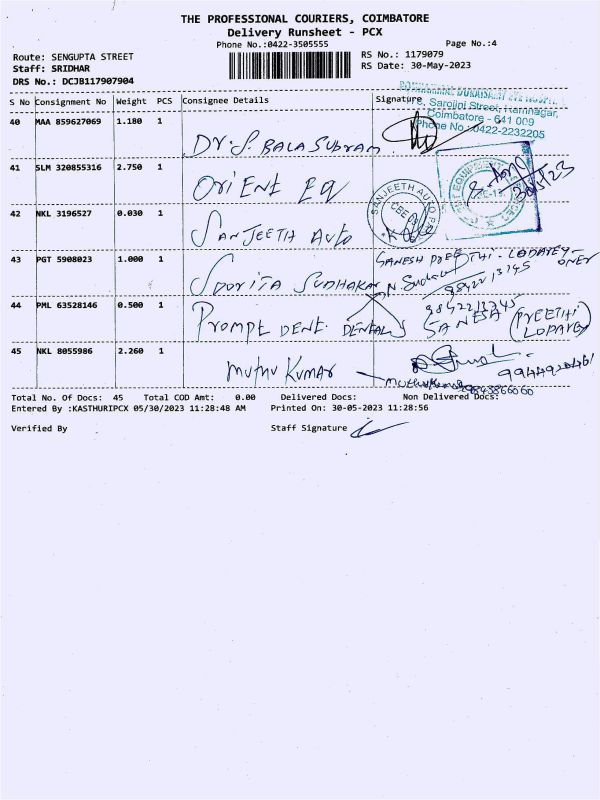 THE PROFESSIONAL COURIERS, COIMBATORE
Delivery Runsheet - PCX
Phone No.:0422-3505555
Page No.:4
Route: SENGUPTA STREET
RS No.: 1179079
Staff: SRIDHAR
RS Date: 30-May-2023
DRS No.: DCJB117907904
S No Consignment No Weight PCS Consignee Details Signature
Sarojini Street, Ramnagar,
Coimbatore - 641 009
Phone No.:0422-2232205
40 MAA 859627069 1.180 1
Dr. S. BALASUBRAM
41 SLM 320855316 2.750 1
ORIENT EQ
30/5/23
42 NKL 3196527 0.030 1
SANJEETH AUTO
SANJEETH AUTO
CBE
43 PGT 5908023 1.000 1
SUDHAKAR
GANESH PREETHI -
98422 13745
44 PML 63528146 0.500 1
PROMPT DENT. DENTALS
9842213745
(PREETHI
45 NKL 8055986 2.260 1
MUTHU KUMAR
9843866060
Total No. Of Docs: 45 Total COD Amt: 0.00 Delivered Docs: Non Delivered Docs:
Entered By :KASTHURIPCX 05/30/2023 11:28:48 AM Printed On: 30-05-2023 11:28:56
Verified By Staff Signature